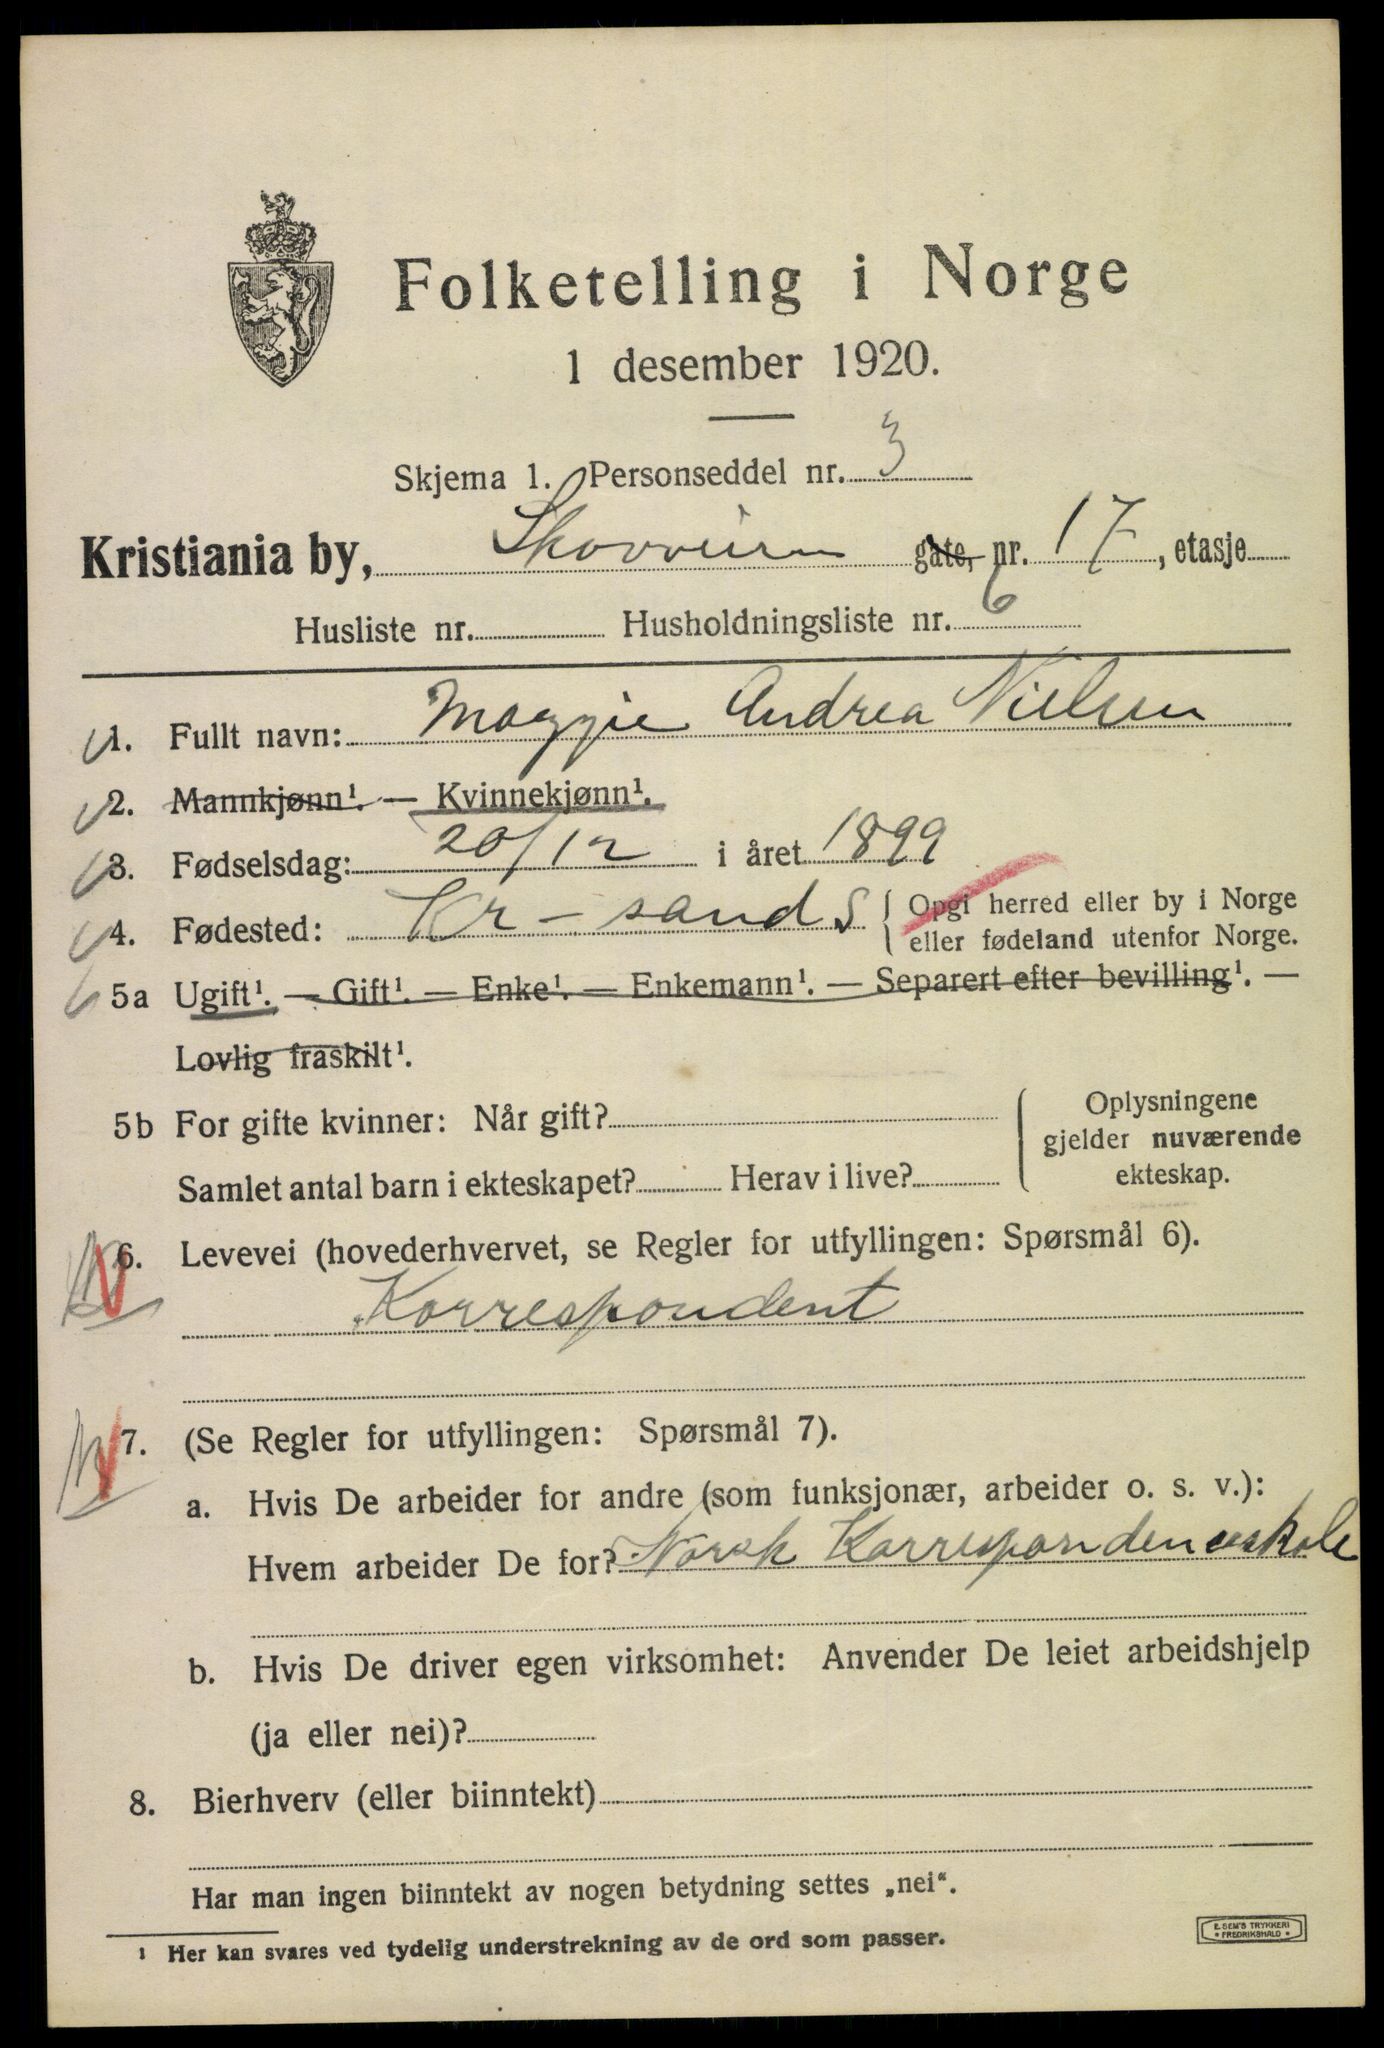 Folketelling i Norge
1 desember 1920.
Skjema 1. Personseddel nr. 3
Kristiania by, Skovveien gate, nr. 17, etasje
Husliste nr. Husholdningsliste nr. 6
1. Fullt navn: Maggie Andrea Nielsen
2. Mannkjønn¹. — Kvinnekjønn¹.
3. Fødselsdag: 20/12 i året 1899
4. Fødested: Kr-sand S { Opgi herred eller by i Norge
eller fødeland utenfor Norge.
5a Ugift¹. — Gift¹. — Enke¹. — Enkemann¹. — Separert efter bevilling¹. —
Lovlig fraskilt¹.
5b For gifte kvinner: Når gift?
Samlet antal barn i ekteskapet? Herav i live?
Oplysningene
gjelder nuværende
ekteskap.
6. Levevei (hovederhvervet, se Regler for utfyllingen: Spørsmål 6).
Korrespondent
7. (Se Regler for utfyllingen: Spørsmål 7).
a. Hvis De arbeider for andre (som funksjonær, arbeider o. s. v.):
Hvem arbeider De for? Norsk Korrespondenceskole
b. Hvis De driver egen virksomhet: Anvender De leiet arbeidshjelp
(ja eller nei)?
8. Bierhverv (eller biinntekt)
Har man ingen biinntekt av nogen betydning settes „nei“.
¹ Her kan svares ved tydelig understrekning av de ord som passer.
E. SEM'S TRYKKERI
* FREDRIKSHALD *